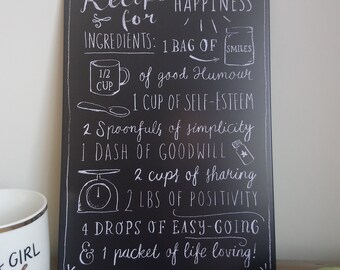 Recipe
for HAPPINESS
INGREDIENTS: 1 BAG OF SMILES
1/2 CUP of good Humour
1 CUP OF SELF-ESTEEM
2 Spoonfuls of simplicity
1 DASH OF GOODWILL
2 cups of sharing
2 LBS OF POSITIVITY
4 DROPS OF EASY-GOING
& 1 packet of life loving!
GIRL